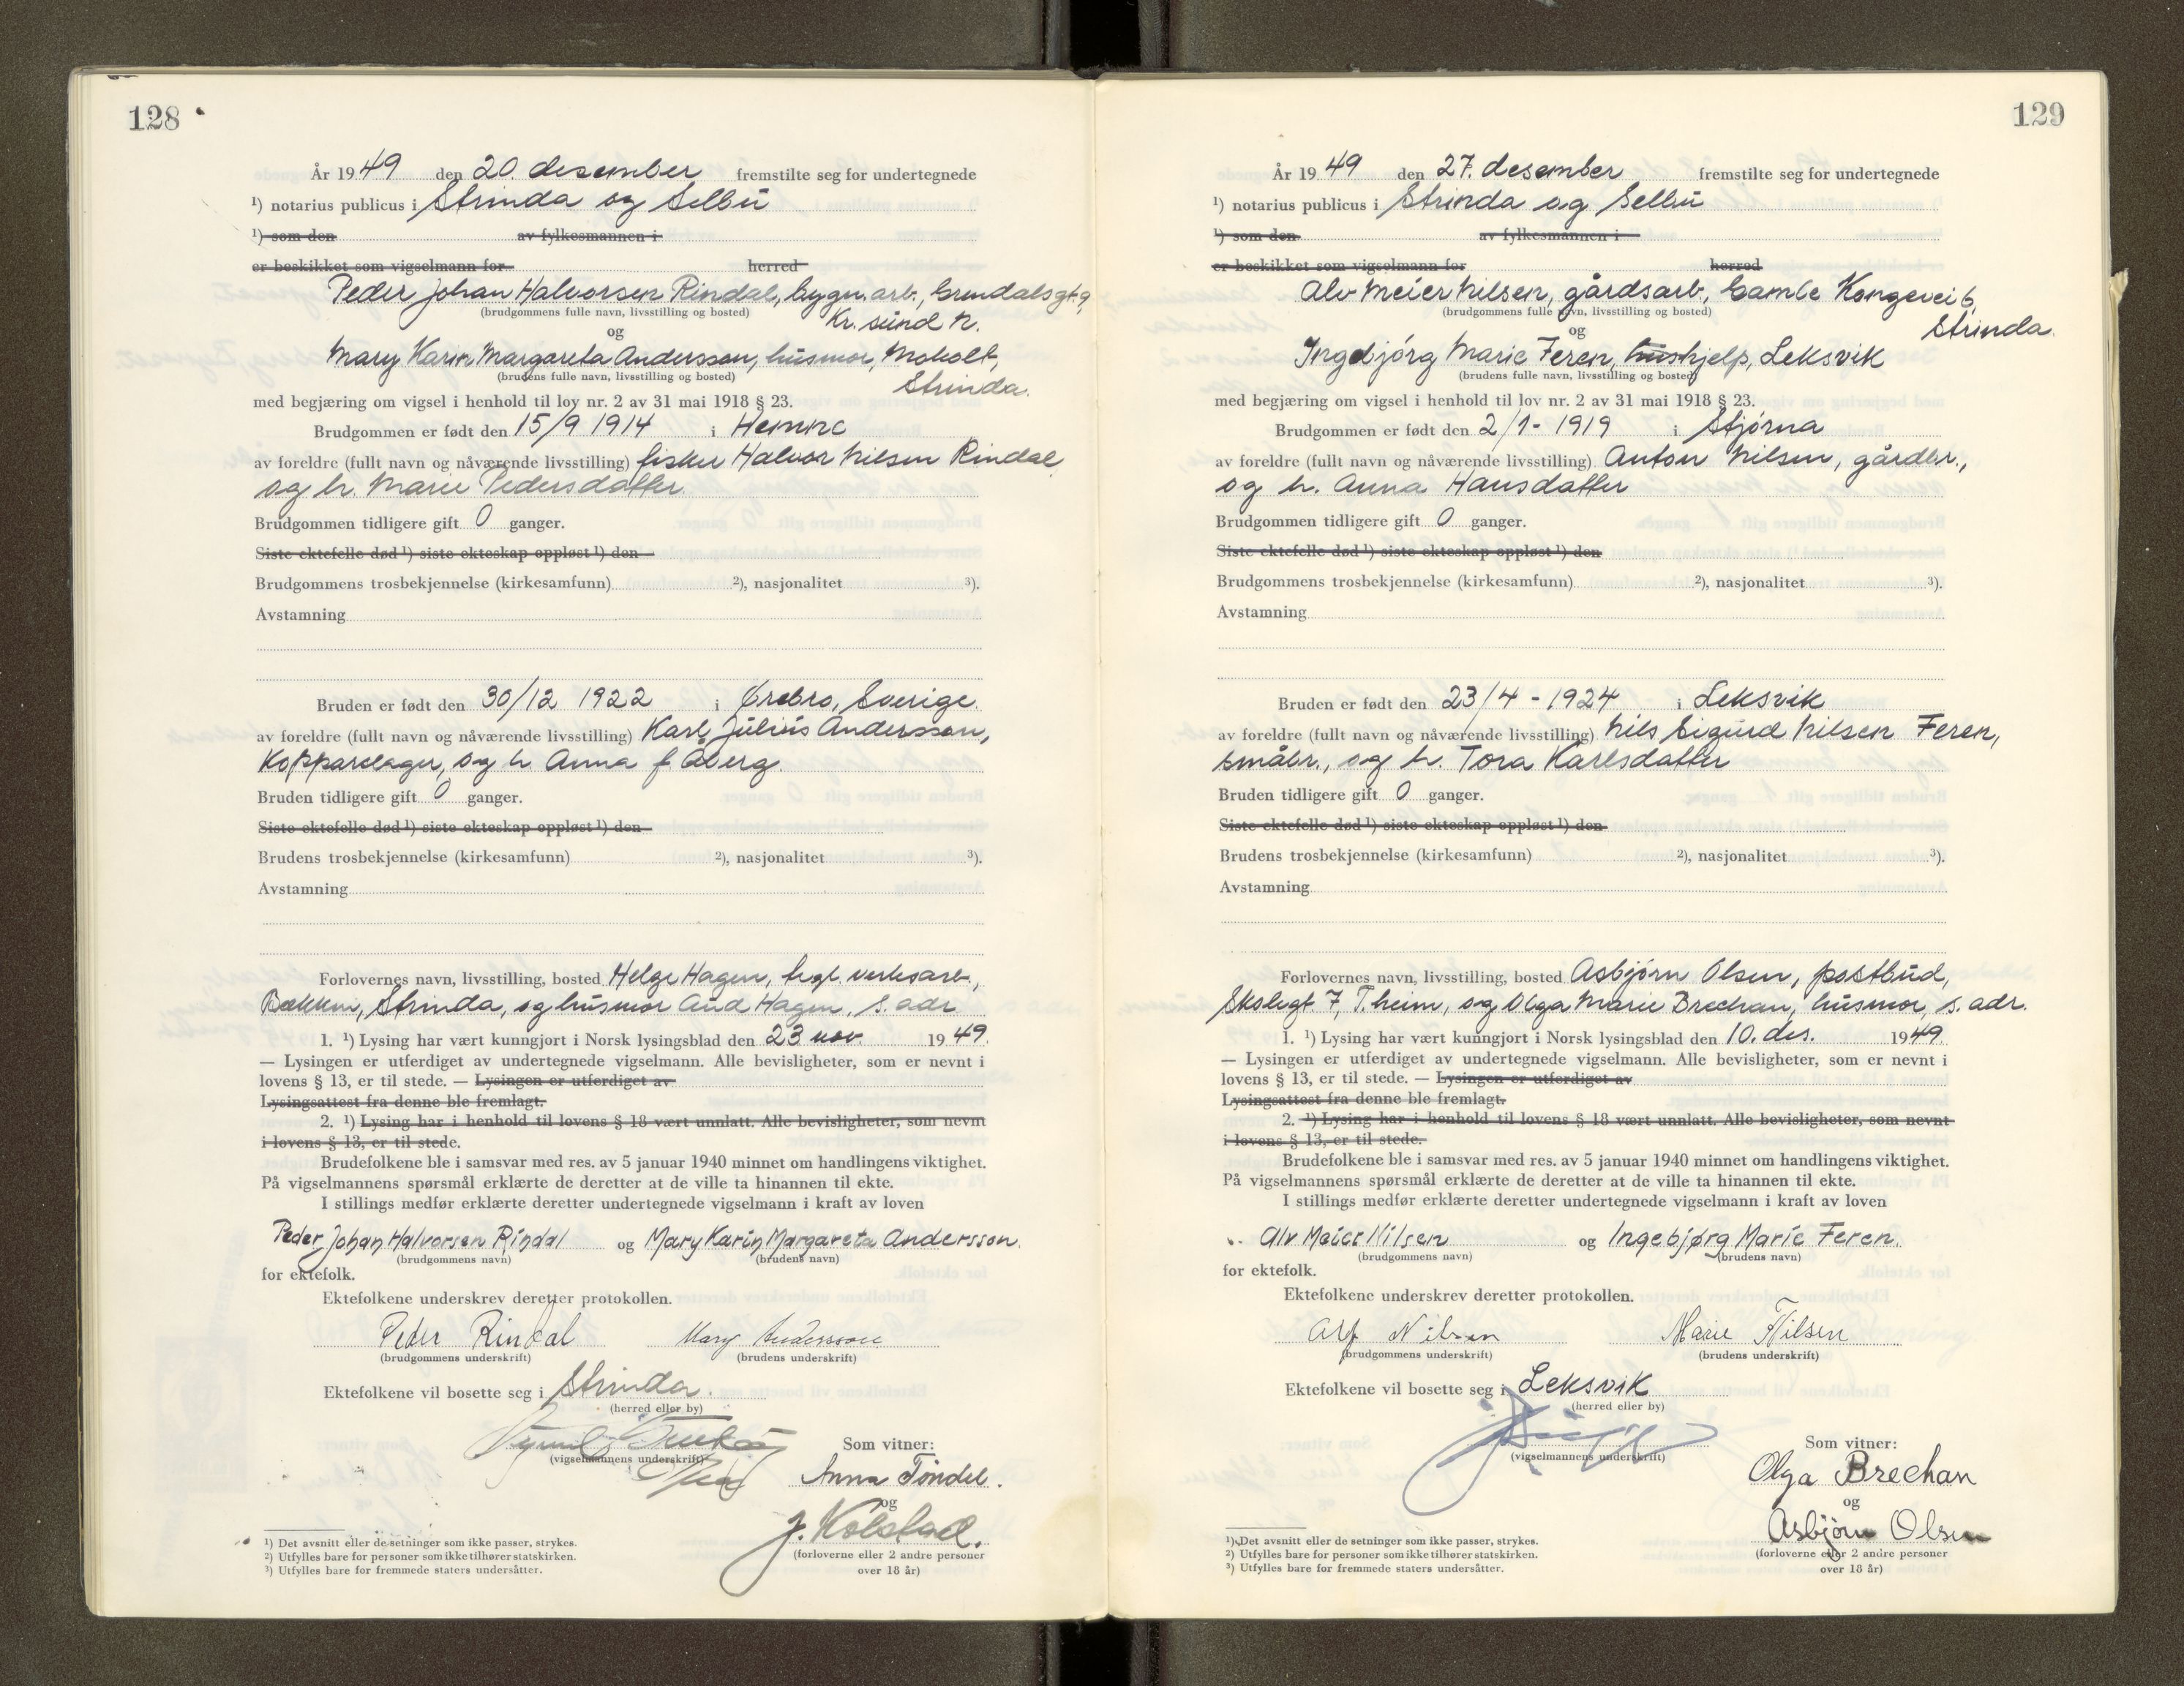 128
År 1949 den 20. desember fremstilte seg for undertegnede
¹) notarius publicus i Strinda og Selbu
¹) som den av fylkesmannen i
er beskikket som vigselmann for herred
Peder Johan Halvorsen Rindal, bygn.arb., Grundalsgt. 9,
(brudgommens fulle navn, livsstilling og bosted)
Kr.sund N.
og
Mary Karin Margareta Andersson, husmor, Moholt,
(brudens fulle navn, livsstilling og bosted)
Strinda.
med begjæring om vigsel i henhold til lov nr. 2 av 31 mai 1918 § 23.
Brudgommen er født den 15/9 1914 i Hemne
av foreldre (fullt navn og nåværende livsstilling) fisker Halvor Nilsen Rindal
og h. Marie Pedersdatter
Brudgommen tidligere gift 0 ganger.
Siste ektefelle død ¹) siste ekteskap oppløst ¹) den
Brudgommens trosbekjennelse (kirkesamfunn) ²), nasjonalitet ³).
Avstamning
Bruden er født den 30/12 1922 i Örebro, Sverige
av foreldre (fullt navn og nåværende livsstilling) Karl Julius Andersson,
Kopparslager, og h. Anna f. Åberg.
Bruden tidligere gift 0 ganger.
Siste ektefelle død ¹) siste ekteskap oppløst ¹) den
Brudens trosbekjennelse (kirkesamfunn) ²), nasjonalitet ³).
Avstamning
Forlovernes navn, livsstilling, bosted Helge Hagen, tegl.verksarb.,
Bakken, Strinda, og husmor Aud Hagen, s. adr
1. ¹) Lysing har vært kunngjort i Norsk lysingsblad den 23 nov 1949.
— Lysingen er utferdiget av undertegnede vigselmann. Alle bevisligheter, som er nevnt i
lovens § 13, er til stede. — Lysingen er utferdiget av
Lysingsattest fra denne ble fremlagt.
2. ¹) Lysing har i henhold til lovens § 18 vært unnlatt. Alle bevisligheter, som nevnt
i lovens § 13, er til stede.
Brudefolkene ble i samsvar med res. av 5 januar 1940 minnet om handlingens viktighet.
På vigselmannens spørsmål erklærte de deretter at de ville ta hinannen til ekte.
I stillings medfør erklærte deretter undertegnede vigselmann i kraft av loven
Peder Johan Halvorsen Rindal og Mary Karin Margareta Andersson.
(brudgommens navn) (brudens navn)
for ektefolk.
Ektefolkene underskrev deretter protokollen.
Peder Rindal Mary Andersson
(brudgommens underskrift) (brudens underskrift)
Ektefolkene vil bosette seg i Strinda.
(herred eller by)
(vigselmannens underskrift)
Som vitner:
Anna Tøndel.
og
J. Kolstad.
(forloverne eller 2 andre personer
over 18 år)
¹) Det avsnitt eller de setninger som ikke passer, strykes.
²) Utfylles bare for personer som ikke tilhører statskirken.
³) Utfylles bare for fremmede staters undersåtter.
129
År 1949 den 27. desember fremstilte seg for undertegnede
¹) notarius publicus i Strinda og Selbu
¹) som den av fylkesmannen i
er beskikket som vigselmann for herred
Alv Meier Nilsen, gårdsarb., Gamle Kongevei 6,
(brudgommens fulle navn, livsstilling og bosted)
Strinda.
og
Ingebjørg Marie Feren, hushjelp, Leksvik
(brudens fulle navn, livsstilling og bosted)
med begjæring om vigsel i henhold til lov nr. 2 av 31 mai 1918 § 23.
Brudgommen er født den 2/1 - 1919 i Stjørna
av foreldre (fullt navn og nåværende livsstilling) Anton Nilsen, gårdbr.,
og h. Anna Hansdatter
Brudgommen tidligere gift 0 ganger.
Siste ektefelle død ¹) siste ekteskap oppløst ¹) den
Brudgommens trosbekjennelse (kirkesamfunn) ²), nasjonalitet ³).
Avstamning
Bruden er født den 23/4 - 1924 i Leksvik
av foreldre (fullt navn og nåværende livsstilling) Nils Sigurd Nilsen Feren,
småbr., og h. Tora Karlsdatter
Bruden tidligere gift 0 ganger.
Siste ektefelle død ¹) siste ekteskap oppløst ¹) den
Brudens trosbekjennelse (kirkesamfunn) ²), nasjonalitet ³).
Avstamning
Forlovernes navn, livsstilling, bosted Asbjørn Olsen, postbud,
Skolegt 7, T.heim, og Olga Marie Brechan, husmor, s. adr.
1. ¹) Lysing har vært kunngjort i Norsk lysingsblad den 10. des. 1949.
— Lysingen er utferdiget av undertegnede vigselmann. Alle bevisligheter, som er nevnt i
lovens § 13, er til stede. — Lysingen er utferdiget av
Lysingsattest fra denne ble fremlagt.
2. ¹) Lysing har i henhold til lovens § 18 vært unnlatt. Alle bevisligheter, som nevnt
i lovens § 13, er til stede.
Brudefolkene ble i samsvar med res. av 5 januar 1940 minnet om handlingens viktighet.
På vigselmannens spørsmål erklærte de deretter at de ville ta hinannen til ekte.
I stillings medfør erklærte deretter undertegnede vigselmann i kraft av loven
Alv Meier Nilsen og Ingebjørg Marie Feren.
(brudgommens navn) (brudens navn)
for ektefolk.
Ektefolkene underskrev deretter protokollen.
Alf Nilsen Marie F Nilsen
(brudgommens underskrift) (brudens underskrift)
Ektefolkene vil bosette seg i Leksvik
(herred eller by)
(vigselmannens underskrift)
Som vitner:
Olga Brechan
og
Asbjørn Olsen
(forloverne eller 2 andre personer
over 18 år)
¹) Det avsnitt eller de setninger som ikke passer, strykes.
²) Utfylles bare for personer som ikke tilhører statskirken.
³) Utfylles bare for fremmede staters undersåtter.